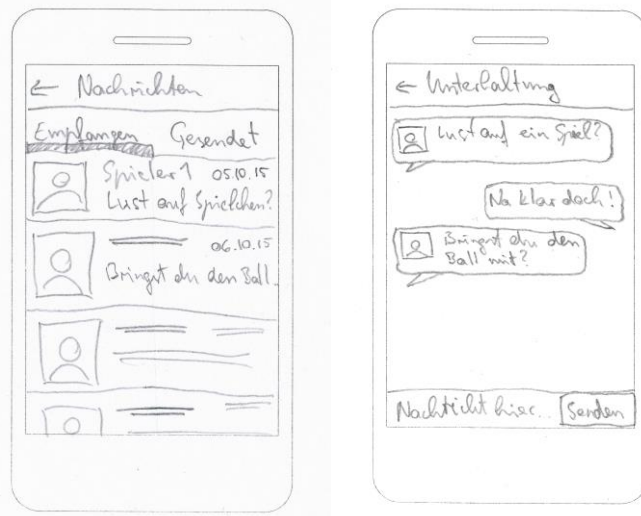 ← Nachrichten
Empfangen Gesendet
Spieler 1 05.10.15
Lust auf Spielchen?
06.10.15
Bringst du den Ball
← Unterhaltung
Lust auf ein Spiel?
Na klar doch!
Bringst du den
Ball mit?
Nachricht hier... Senden